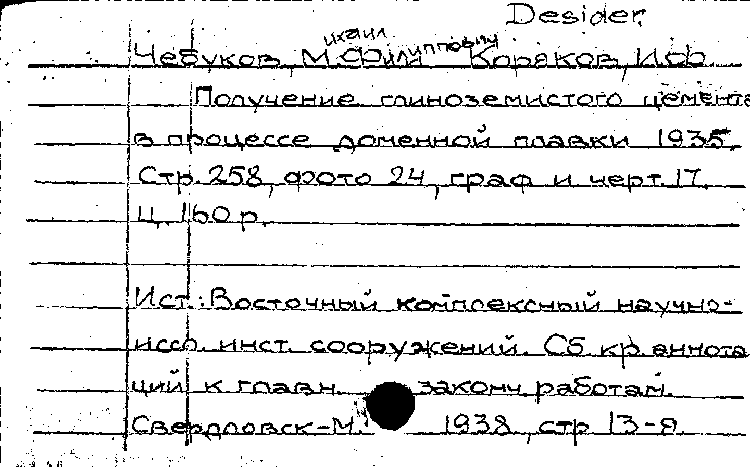 Desider.
Чебуков, Михаил Филиппович Коряков, И.Ф.
Получение глиноземистого цемента
в процессе доменной плавки 1935.
Стр. 258, фото 24, граф и черт. 17.
Ц. 160 р.
Ист.: Восточный комплексный научно-
иссл. инст. сооружений. Сб. кр. аннота
ций к главн. законч. работам.
Свердловск-М. 1938, стр 13-я